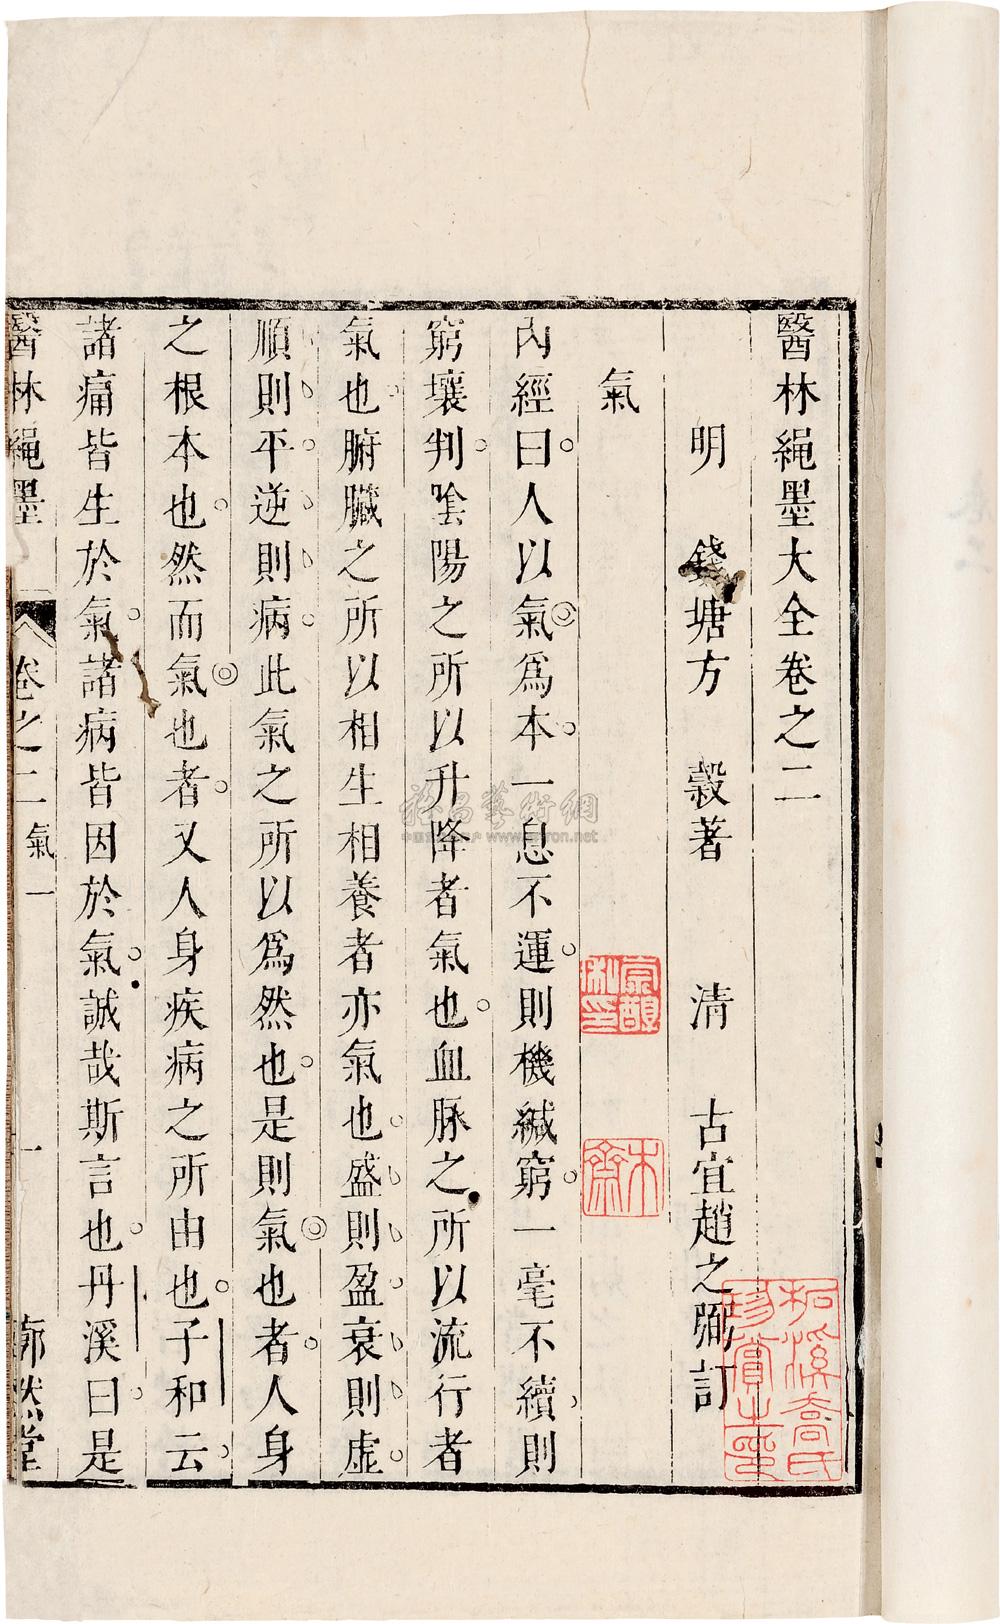 醫林繩墨大全卷之二
明 錢塘方 穀著 清 古宜趙之弼訂
氣
內經曰人以氣爲本一息不運則機緘窮一毫不續則
窮壤判陰陽之所以升降者氣也血脉之所以流行者
氣也腑臟之所以相生相養者亦氣也盛則盈衰則虛
順則平逆則病此氣之所以爲然也是則氣也者人身
之根本也然而氣也者又人身疾病之所由也子和云
諸痛皆生於氣諸病皆因於氣誠哉斯言也丹溪曰是
醫林繩墨 卷之二 氣一 一 廓然堂
木齋
柘溪喬氏珍賞之印
www.artron.net